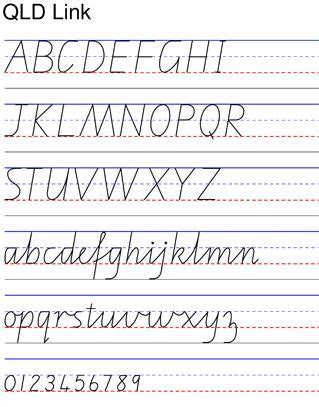 QLD Link
ABCDEFGHI
JKLMNOPQR
STUVWXYZ
abcdefghijklmn
opqrstuvwxyz
0123456789